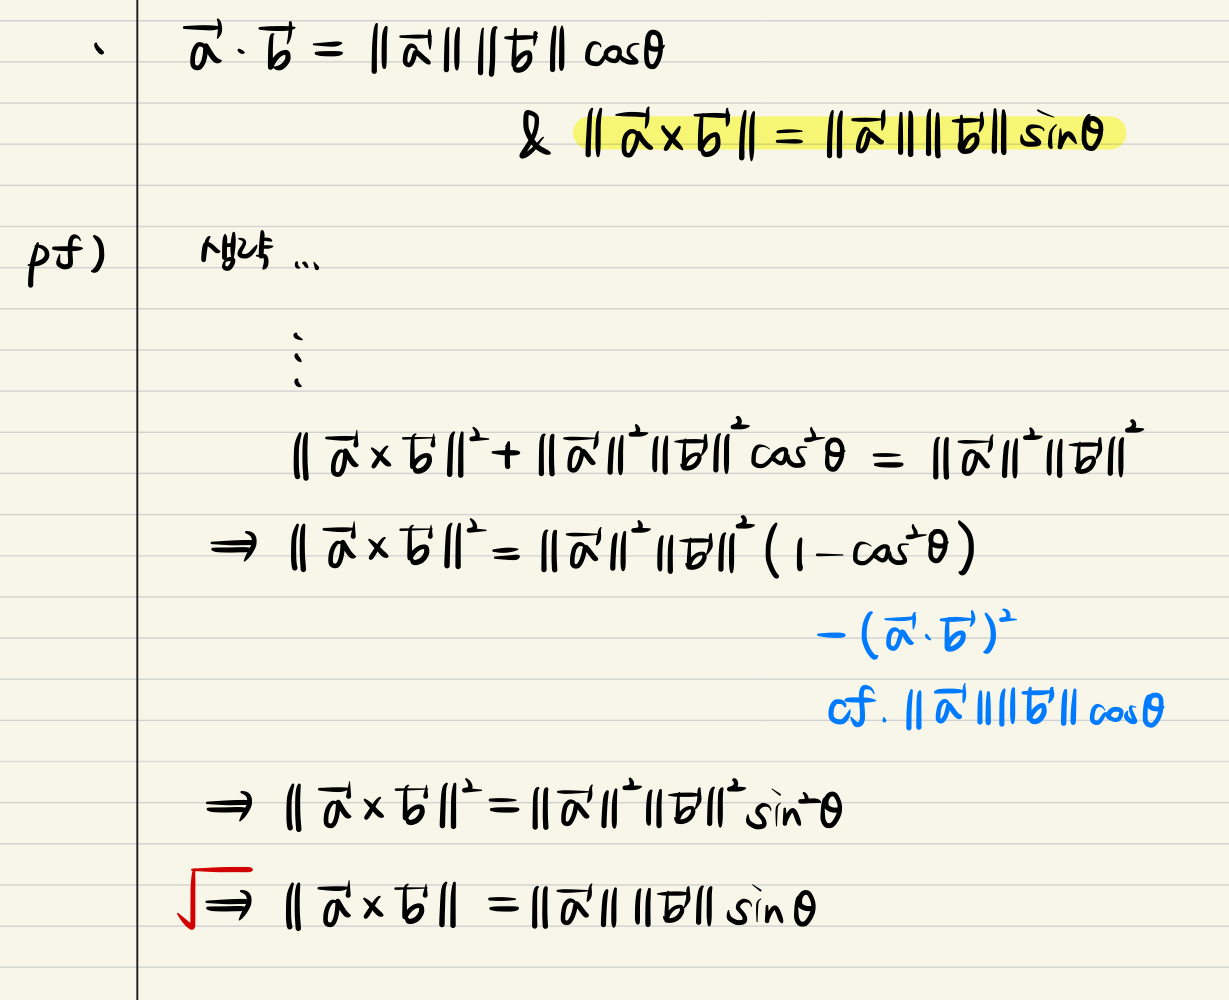 ` a⃗ · b⃗ = ‖a⃗‖ ‖b⃗‖ cosθ
& ‖a⃗ × b⃗‖ = ‖a⃗‖ ‖b⃗‖ sinθ
pf) 생략 ...
⋮
‖a⃗ × b⃗‖² + ‖a⃗‖² ‖b⃗‖² cos²θ = ‖a⃗‖² ‖b⃗‖²
⇒ ‖a⃗ × b⃗‖² = ‖a⃗‖² ‖b⃗‖² (1 − cos²θ)
− (a⃗ · b⃗)²
cf. ‖a⃗‖ ‖b⃗‖ cosθ
⇒ ‖a⃗ × b⃗‖² = ‖a⃗‖² ‖b⃗‖² sin²θ
√ ⇒ ‖a⃗ × b⃗‖ = ‖a⃗‖ ‖b⃗‖ sinθ